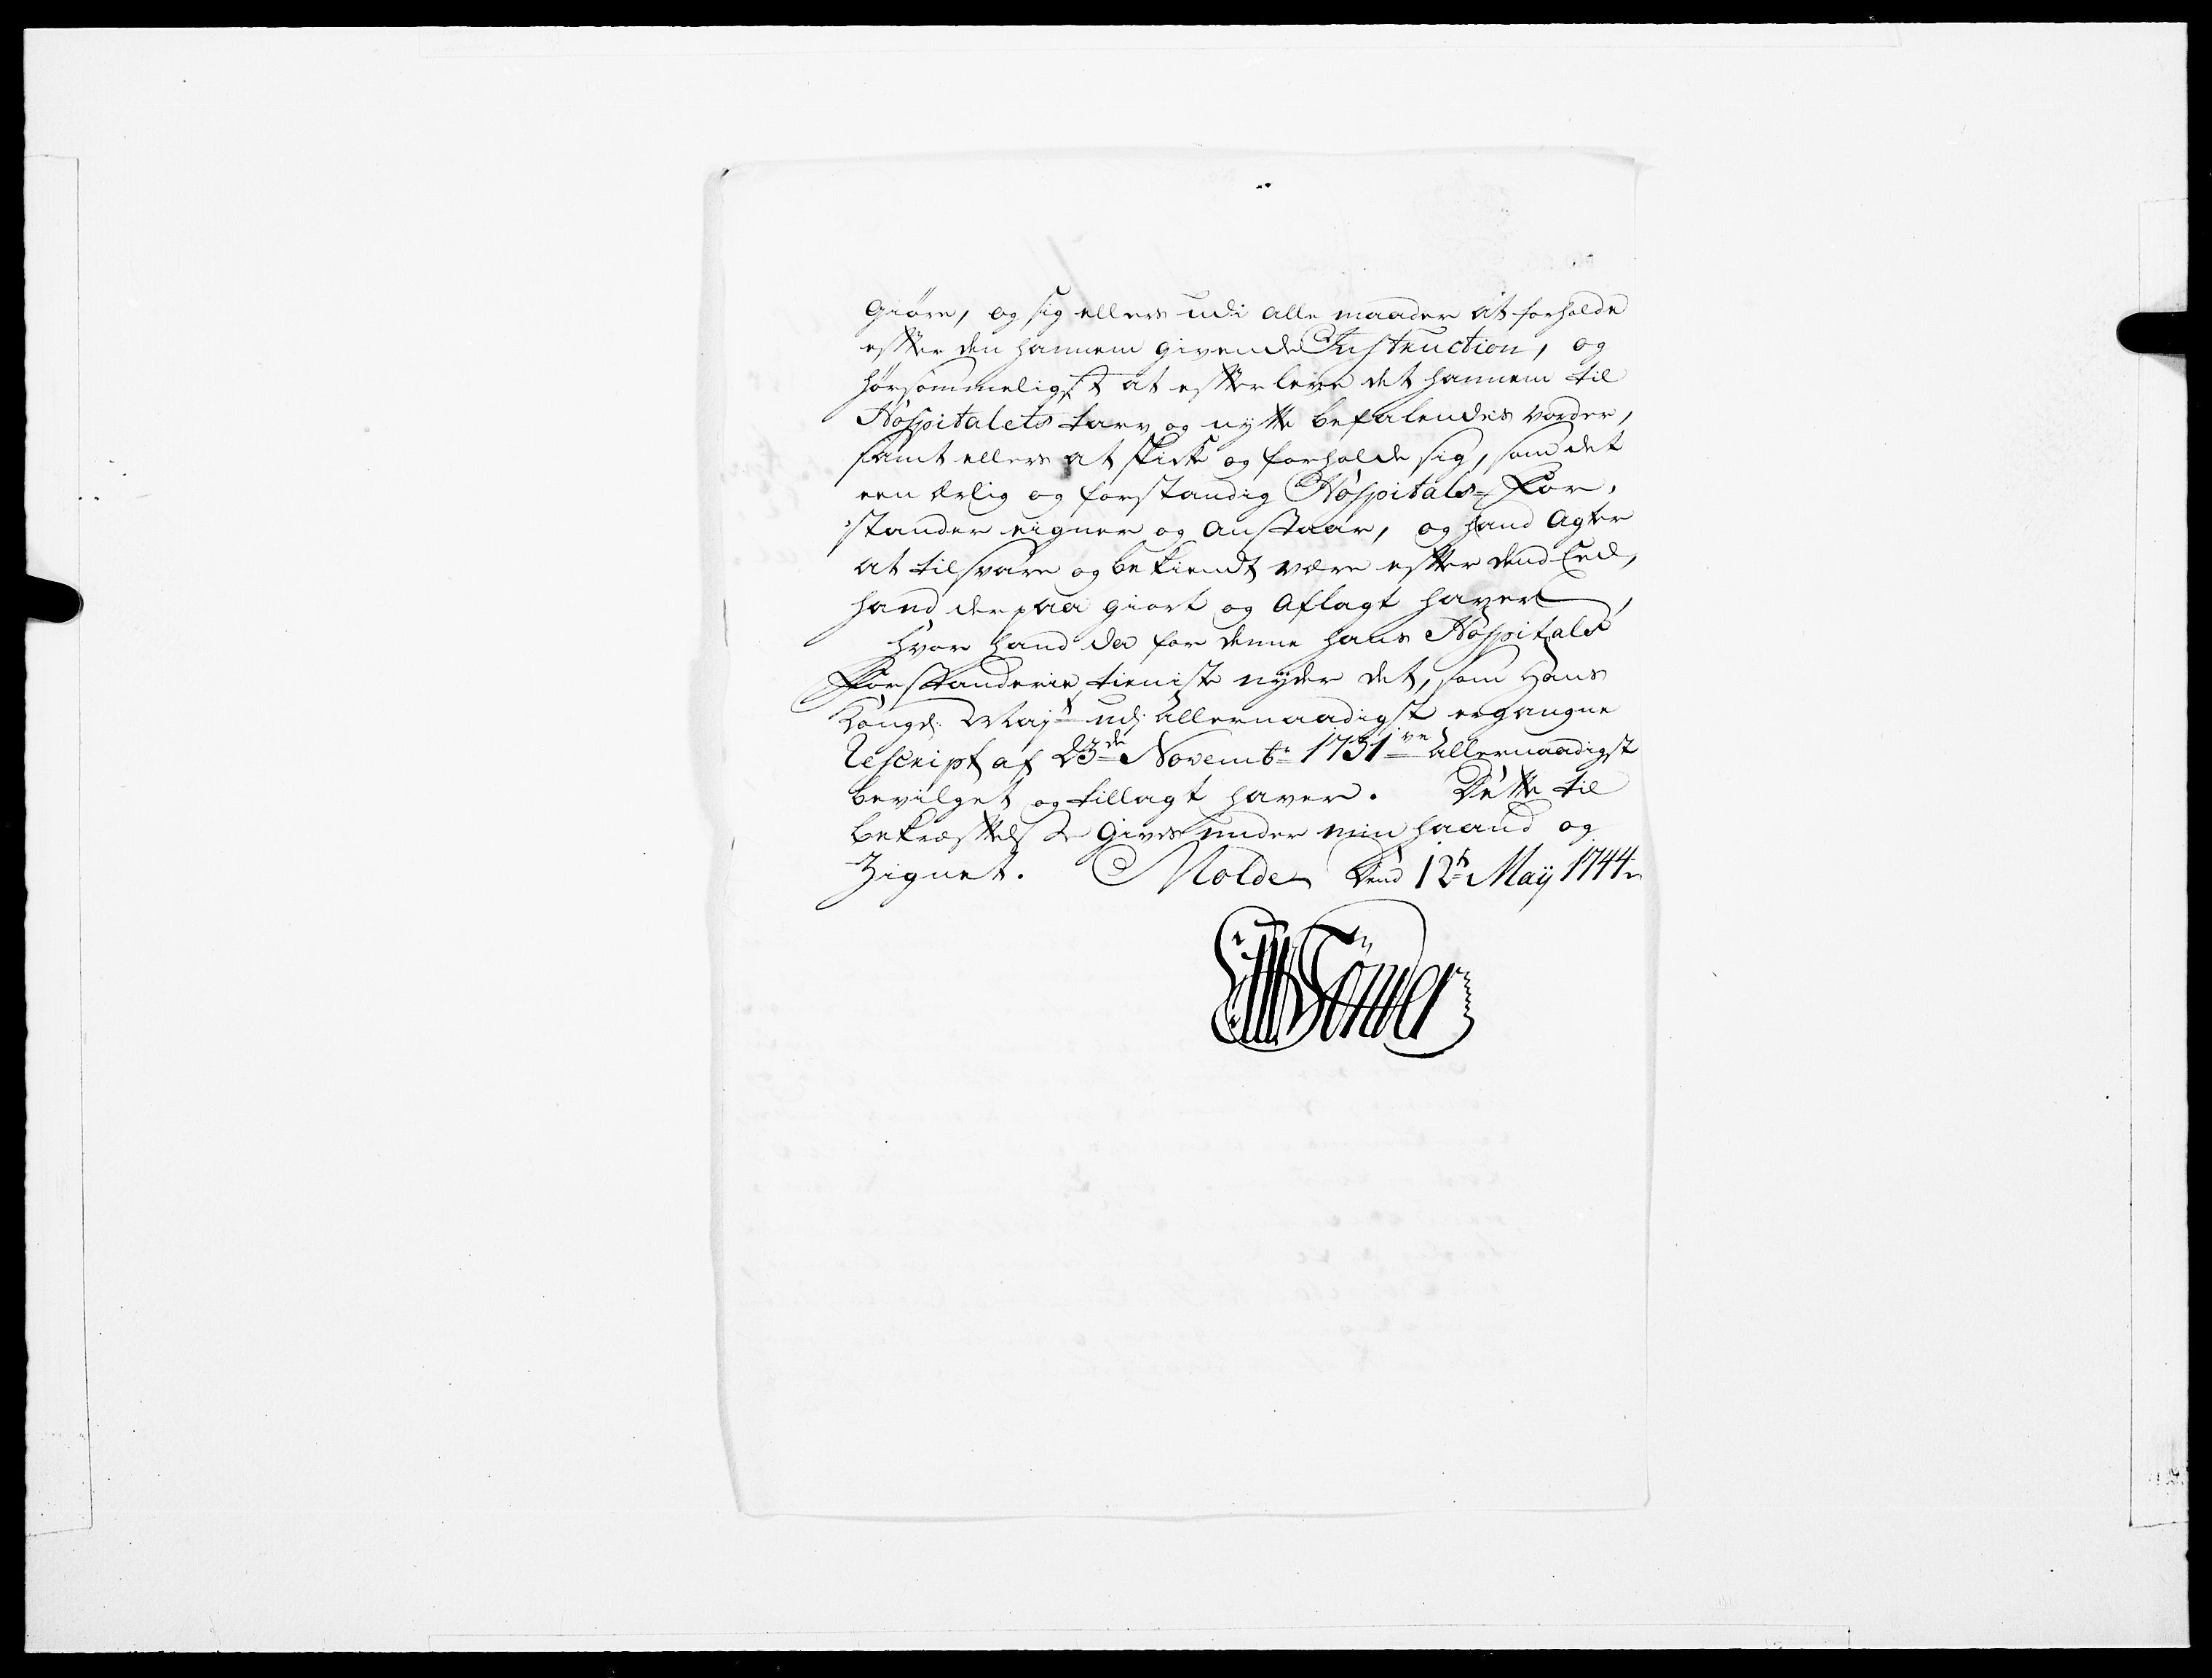 Giøre, og sig ellers udi alle maader at forholde
effter den hannem givende Instruction, og
hørsommeligst at effterleve det hannem til
Hospitalets tarv og nytte befalendes vorder,
samt ellers at skicke og forholde sig, som det
een ærlig og forstandig Hospitals-For,
stander eigner og anstaar, og hand agter
at tilsvare og bekiendt være effter dend Eed,
hand derpaa giort og aflagt haver,
Hvor hand da for denne hans Hospitals
Forstanderie tieniste nyder det, som Hans
Kongel: Majt udj allernaadigst ergangne
Rescript af 23de Novembr 1731ve allernaadigst
bevilget og tillagt haver. Dette til
bekræfftelse Gives under min haand og
Zignet. Molde Dend 12t Maij 1744
Tønder